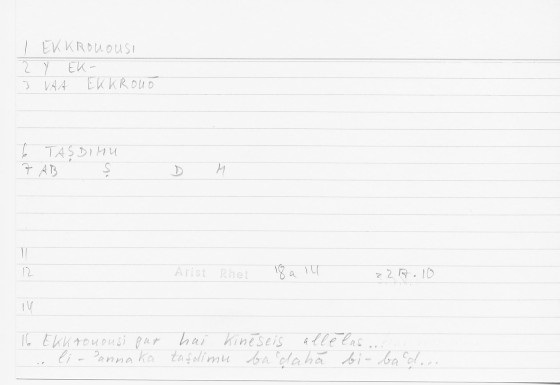 1 EKKROUOUSI
2 Y EK-
3 VAA EKKROUŌ
6 TAṢDIMU
7 AB Ṣ D M
11
12 Arist Rhet 18a 14 227.10
14
16 Ekkrouousi gar hai kinēseis allēlas...
.. li-ʾannaka taṣdimu baʿḍahā bi-baʿḍ...